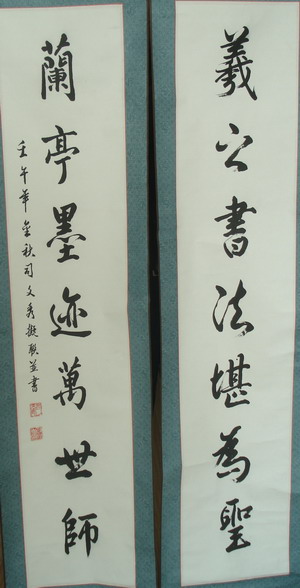 羲之書法堪為聖
蘭亭墨迹萬世師
壬午年金秋司文秀撰联並書